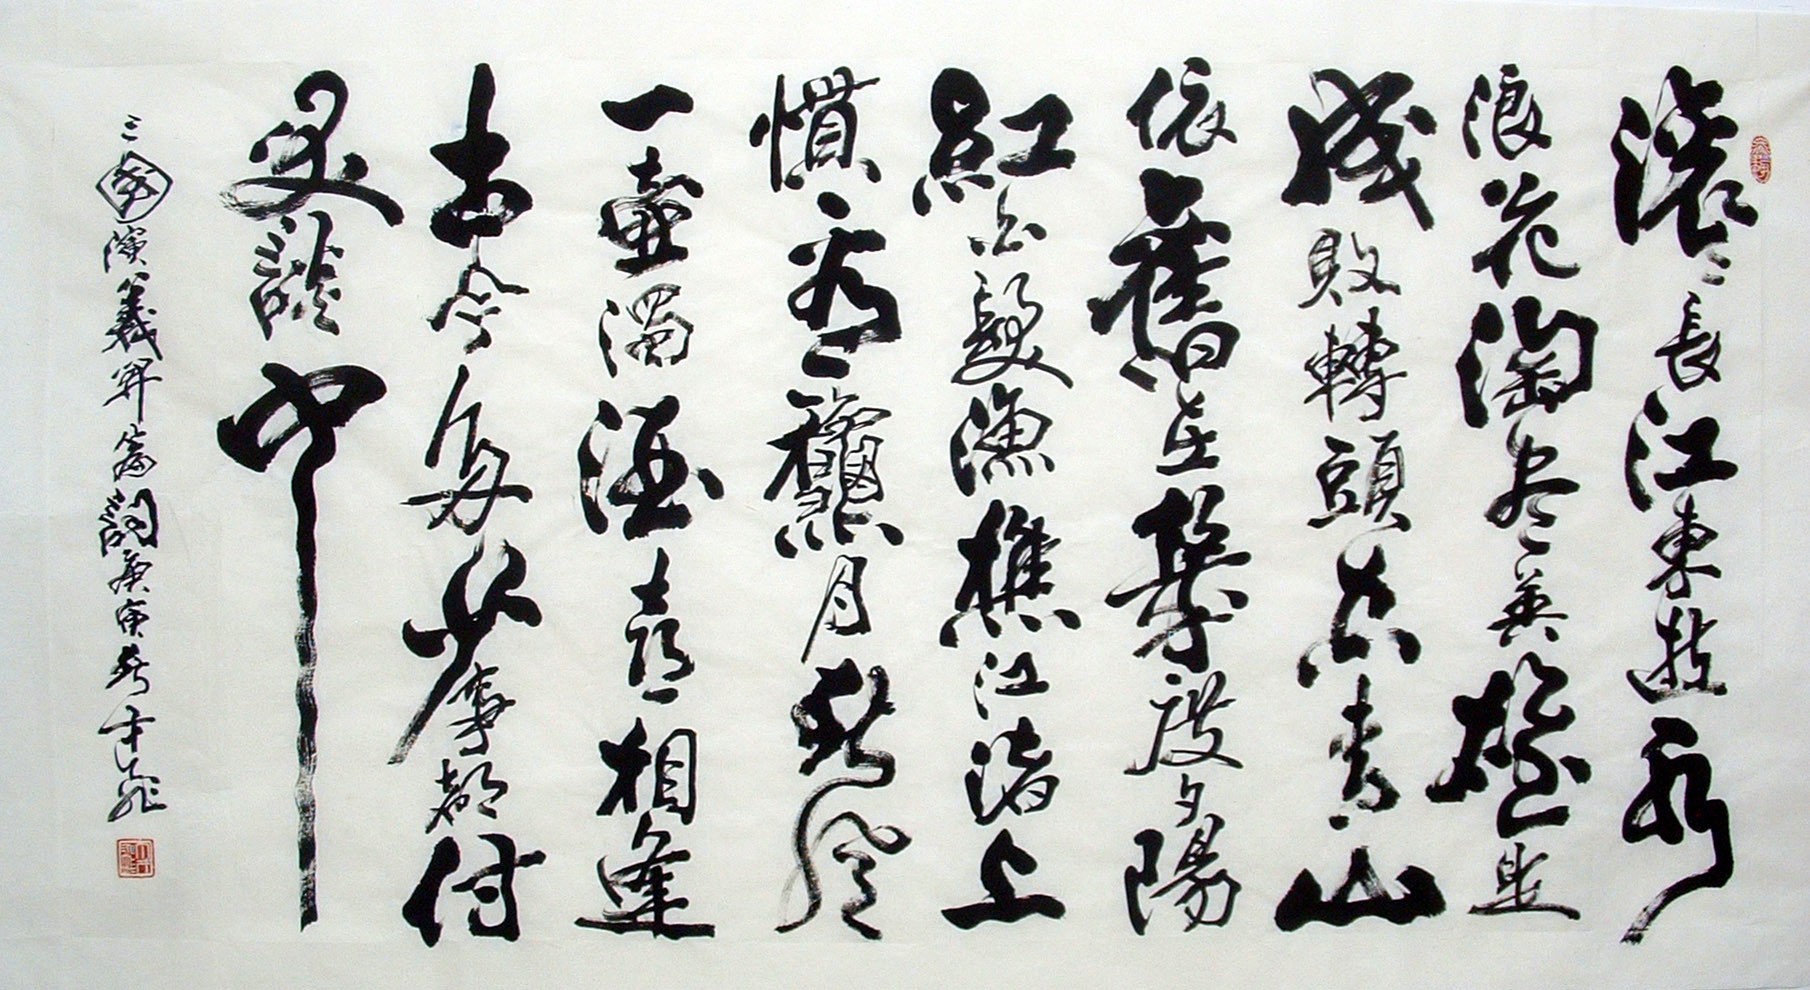 滚滚長江東逝水
浪花淘尽英雄是
成敗轉頭空青山
依舊在幾度夕陽
紅白髮漁樵江渚上
慣看龝月春風
一壺濁酒喜相逢
古今多少事都付
笑談中
三國演義開篇詞庚寅春